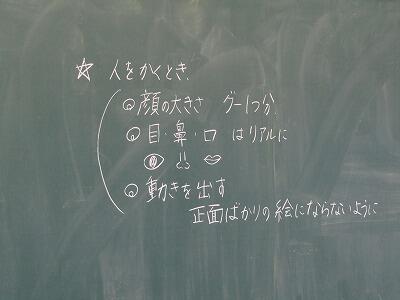 ☆ 人をかくとき
◎顔の大きさ グー1つ分
◎目・鼻・口 はリアルに
◎動きを出す
正面ばかりの絵にならないように